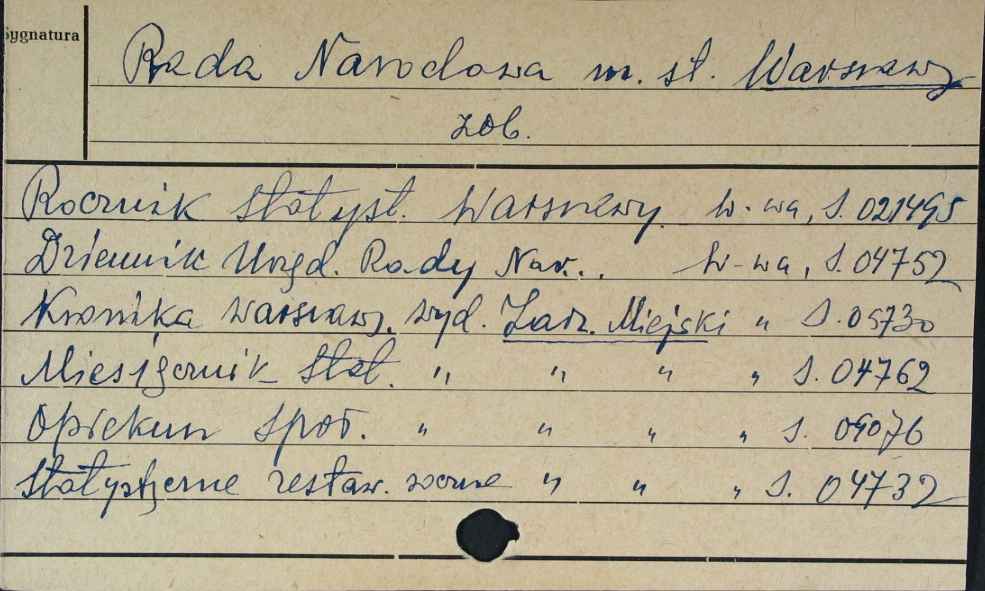 Sygnatura
Rada Narodowa m. st. Warszawy
zob.
Rocznik Statyst. Warszawy W-wa, S. 021495
Dziennik Urzęd. Rady Nar. . W-wa, S. 04752
Kronika Warszawy. wyd. Zarz. Miejski " S. 05730
Miesięcznik Stat. " " " " S. 04762
Opiekun społ. " " " " S. 09076
Statystyczne zestaw. roczne " " " S. 04732